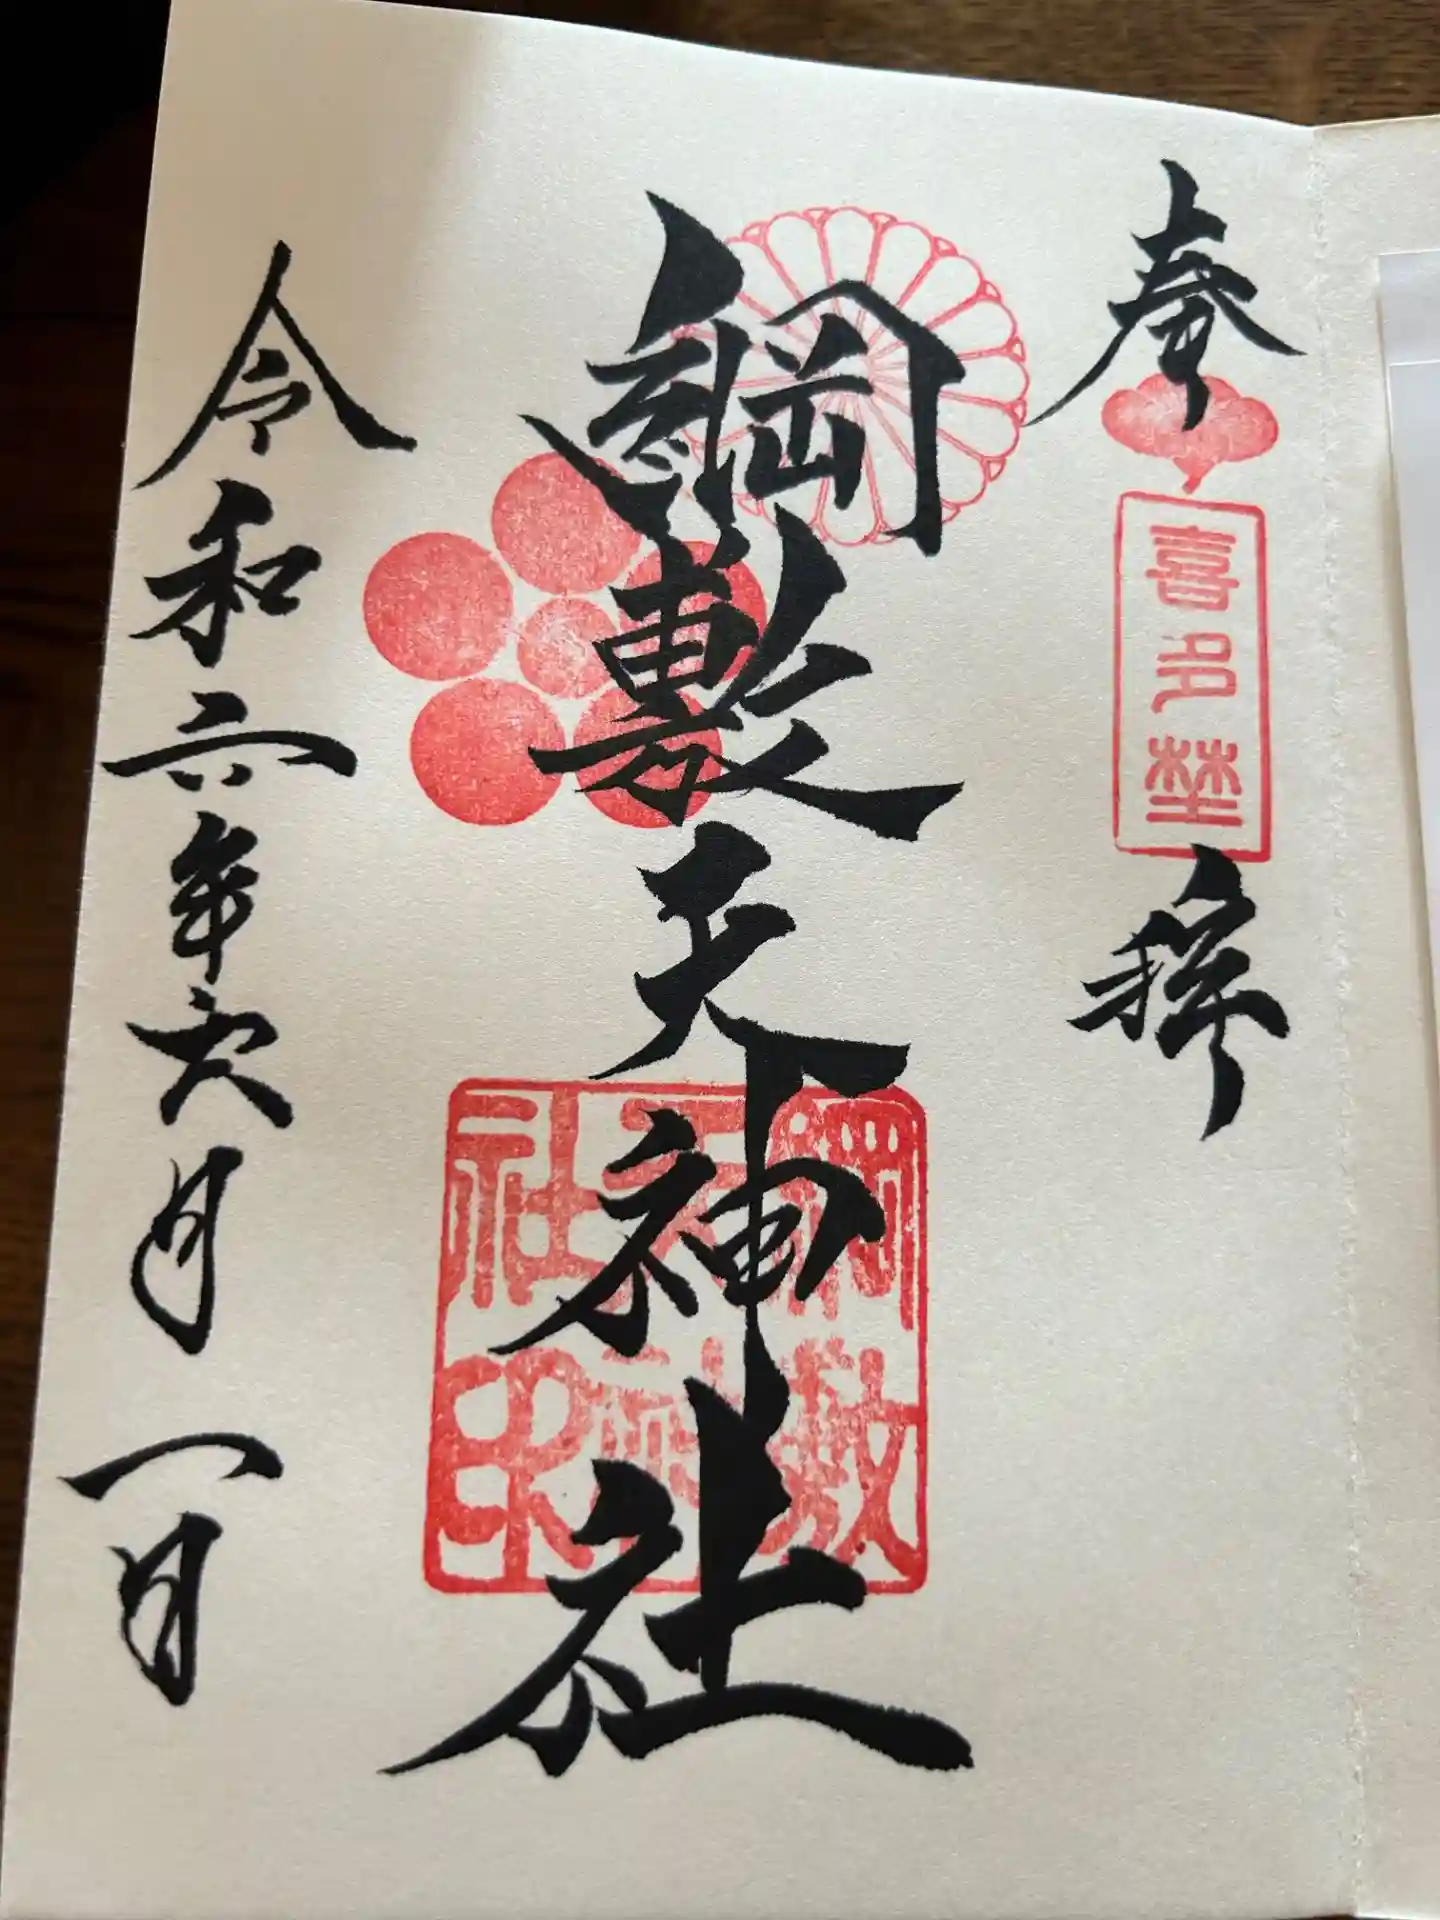 奉
喜多埜
拝
綱敷天神社
綱敷
天神
社印
令和六年六月一日